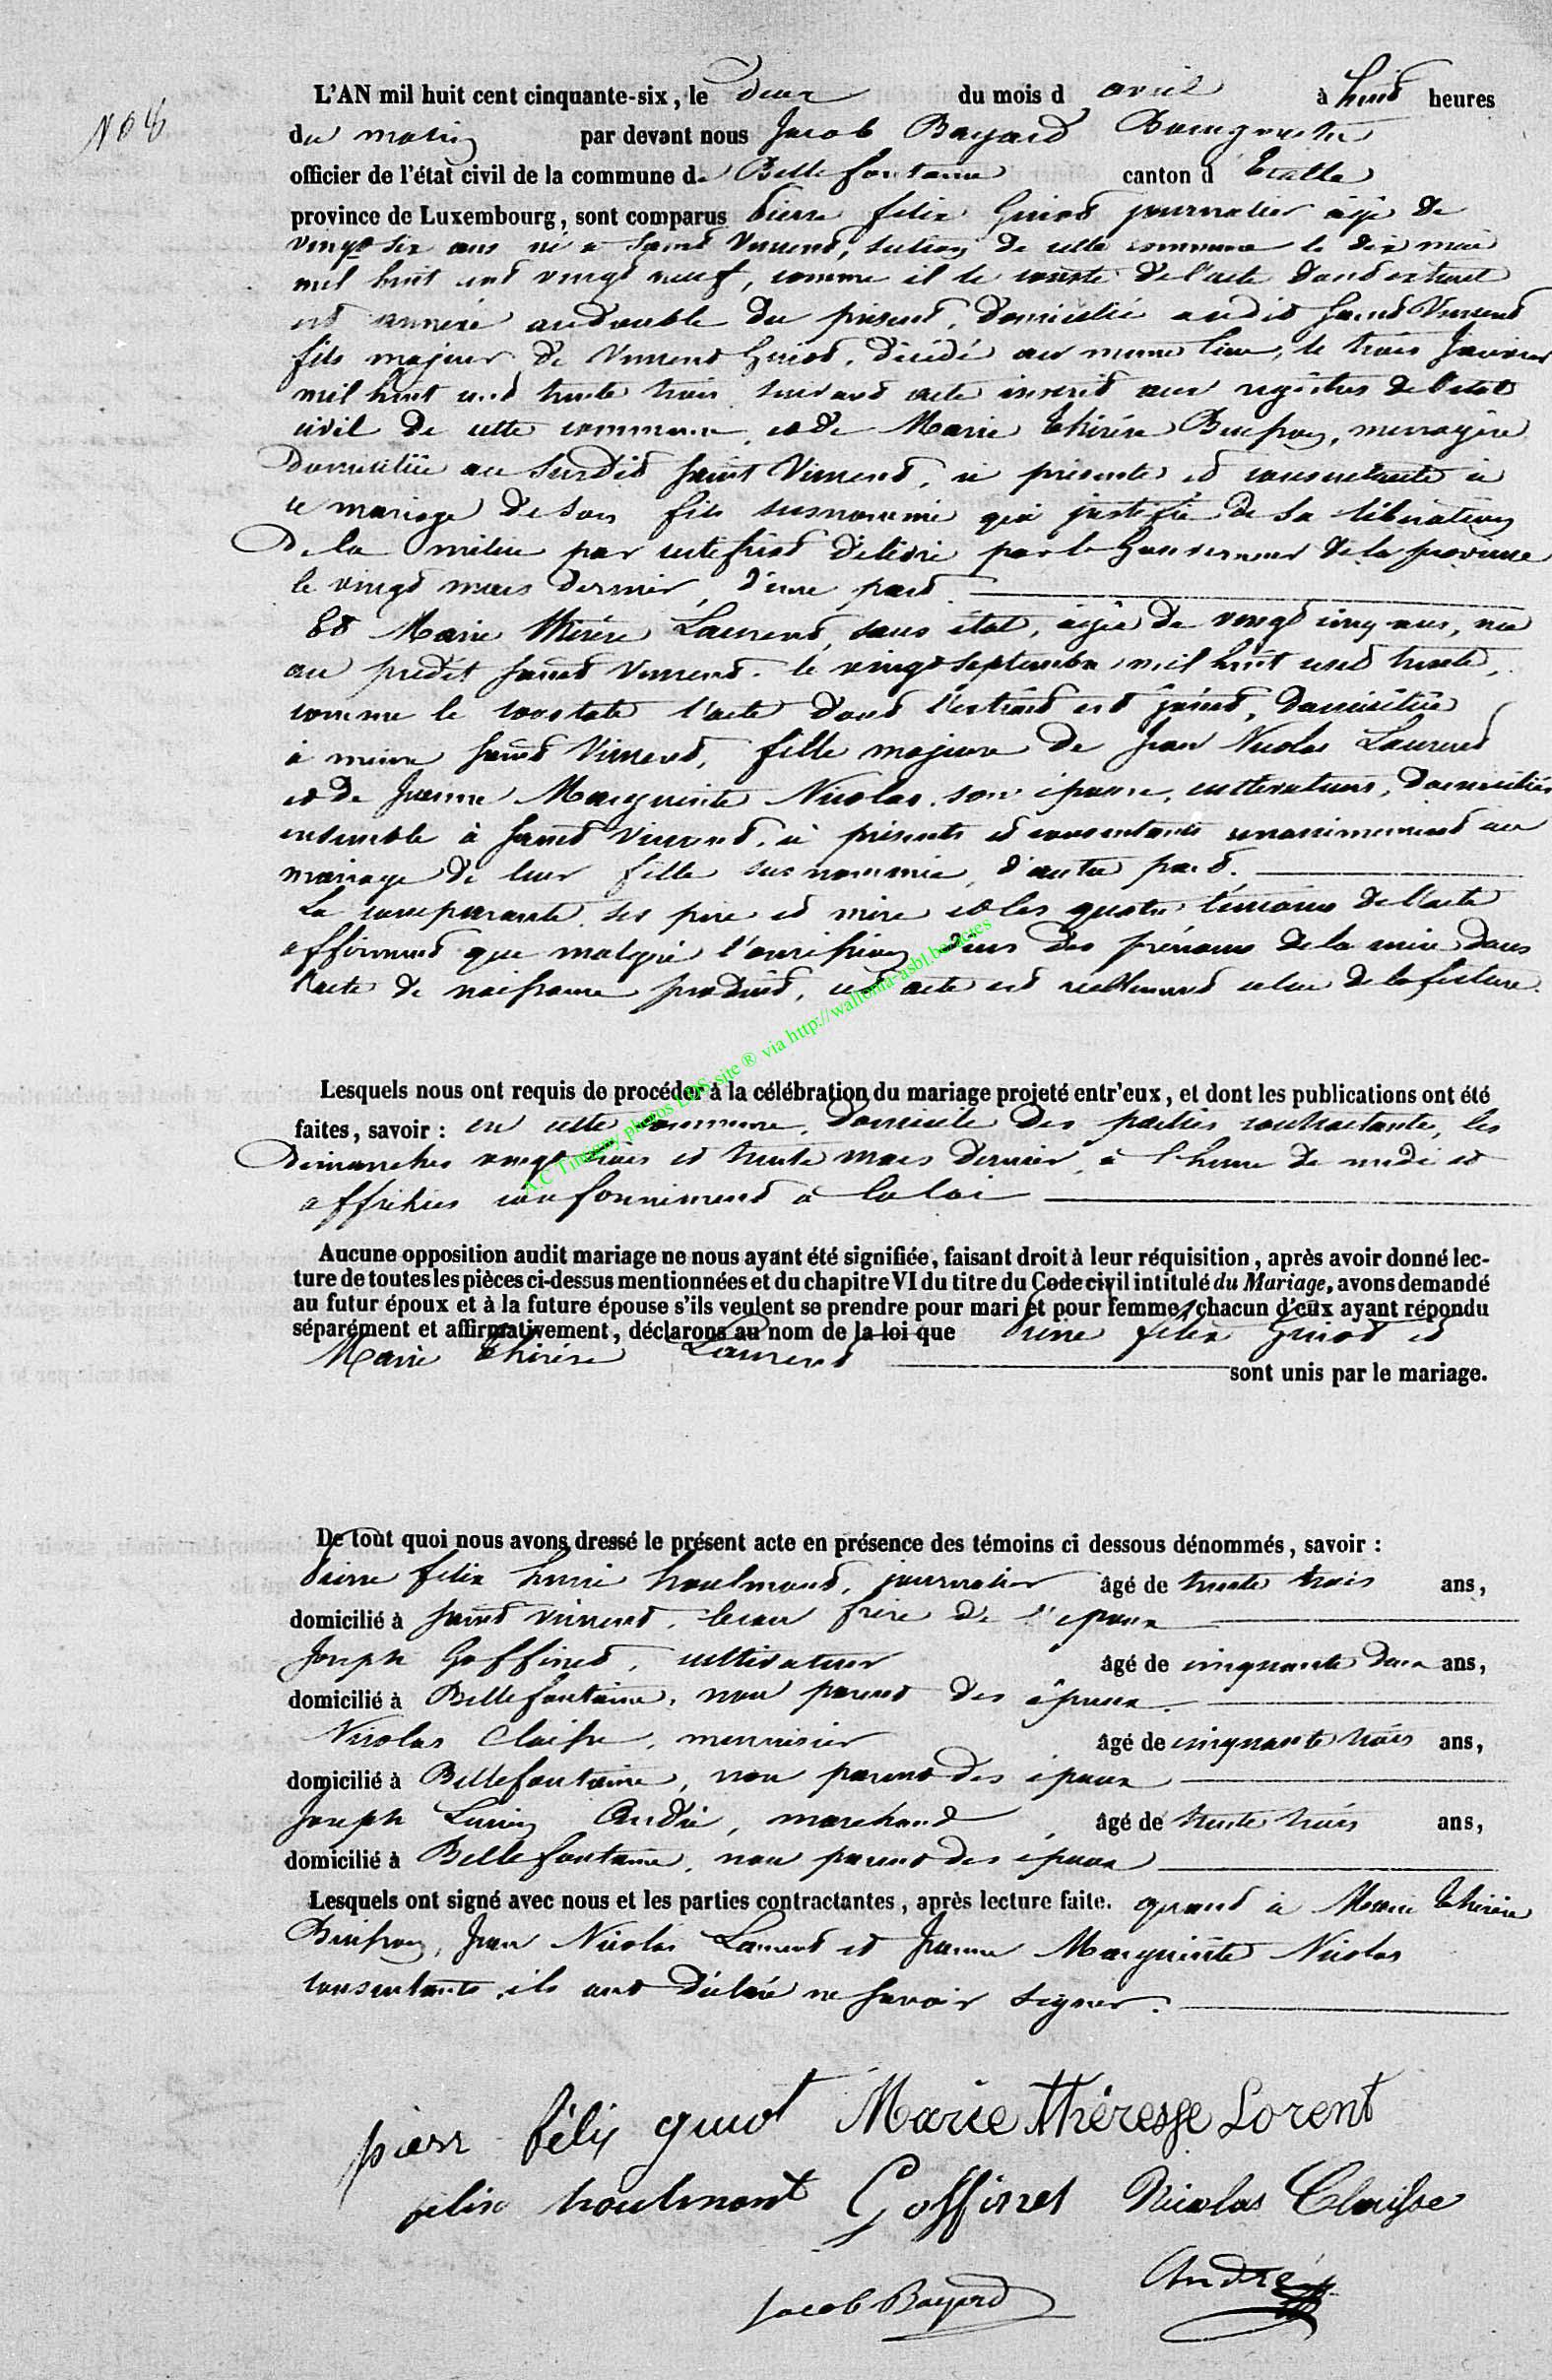 N° 8
L'AN mil huit cent cinquante-six, le deux du mois d avril à huit heures
du matin par devant nous Jacob Bayard Bourgmestre
officier de l'état civil de la commune de Bellefontaine canton d' Etalle
province de Luxembourg, sont comparus Pierre felix Guiot journalier âgé de
vingt six ans né à Saint Vincent, section de cette commune le dix mai
mil huit cent vingt neuf, comme il le conste de l'acte dont extrait
est annexé au double du présent, domicilié audit Saint Vincent
fils majeur de Vincent Guiot, décédé au même lieu, le trois Janvier
mil huit cent trente trois suivant acte inscrit aux registres de l'état
civil de cette commune, et de Marie thérèse Buisson, ménagère
domiciliée au susdit Saint Vincent, ci présente et consentante à
ce mariage de son fils susnommé qui justifie de sa libération
de la milice par certificat délivré par le Gouverneur de la province
le vingt mars dernier, d'une part
Et Marie thérèse Laurent, sans état, âgée de vingt cinq ans, née
au prédit Saint Vincent le vingt septembre mil huit cent trente,
comme le constate l'acte dont l'extrait est joint, domiciliée
à même Saint Vincent, fille majeure de Jean Nicolas Laurent
et de Jeanne Marguerite Nicolas son épouse, cultivateurs, domiciliés
ensemble à Saint Vincent, ci présents et consentants unanimement au
mariage de leur fille susnommée, d'autre part.
La comparante ses père et mère et les quatre témoins de l'acte
affirment que malgré l'omission d'un des prénoms de la mère dans
l'acte de naissance produit, cet acte est réellement celui de la future.
Lesquels nous ont requis de procéder à la célébration du mariage projeté entr'eux, et dont les publications ont été
faites, savoir : en cette commune, domicile des parties contractantes, les
dimanches vingt trois et trente mars dernier, à l'heure de midi et
affichées conformément à la loi
Aucune opposition audit mariage ne nous ayant été signifiée, faisant droit à leur réquisition, après avoir donné lec-
ture de toutes les pièces ci-dessus mentionnées et du chapitre VI du titre du Code civil intitulé du Mariage, avons demandé
au futur époux et à la future épouse s'ils veulent se prendre pour mari et pour femme, chacun d'eux ayant répondu
séparément et affirmativement, déclarons au nom de la loi que Pierre felix Guiot et
Marie thérèse Laurent sont unis par le mariage.
De tout quoi nous avons dressé le présent acte en présence des témoins ci dessous dénommés, savoir :
Pierre felix houlmont, journalier âgé de trente trois ans,
domicilié à Saint Vincent, beau frère de l'époux
Joseph Goffinet, cultivateur âgé de cinquante deux ans,
domicilié à Bellefontaine, non parent des époux
Nicolas Claisse, menuisier âgé de cinquante trois ans,
domicilié à Bellefontaine, non parent des époux
Joseph Lucien André, marchand âgé de trente trois ans,
domicilié à Bellefontaine, non parent des époux
Lesquels ont signé avec nous et les parties contractantes, après lecture faite. quant à Marie thérèse
Buisson, Jean Nicolas Laurent et Jeanne Marguerite Nicolas
consentants, ils ont déclaré ne savoir signer.
pierr félix guiot Marie thèresse Lorent
felix houlmont Goffinet Nicolas Claisse
André
Jacob Bayard
A.C Tintigny photos LDS site ® via http://wallonia-asbl.be/actes